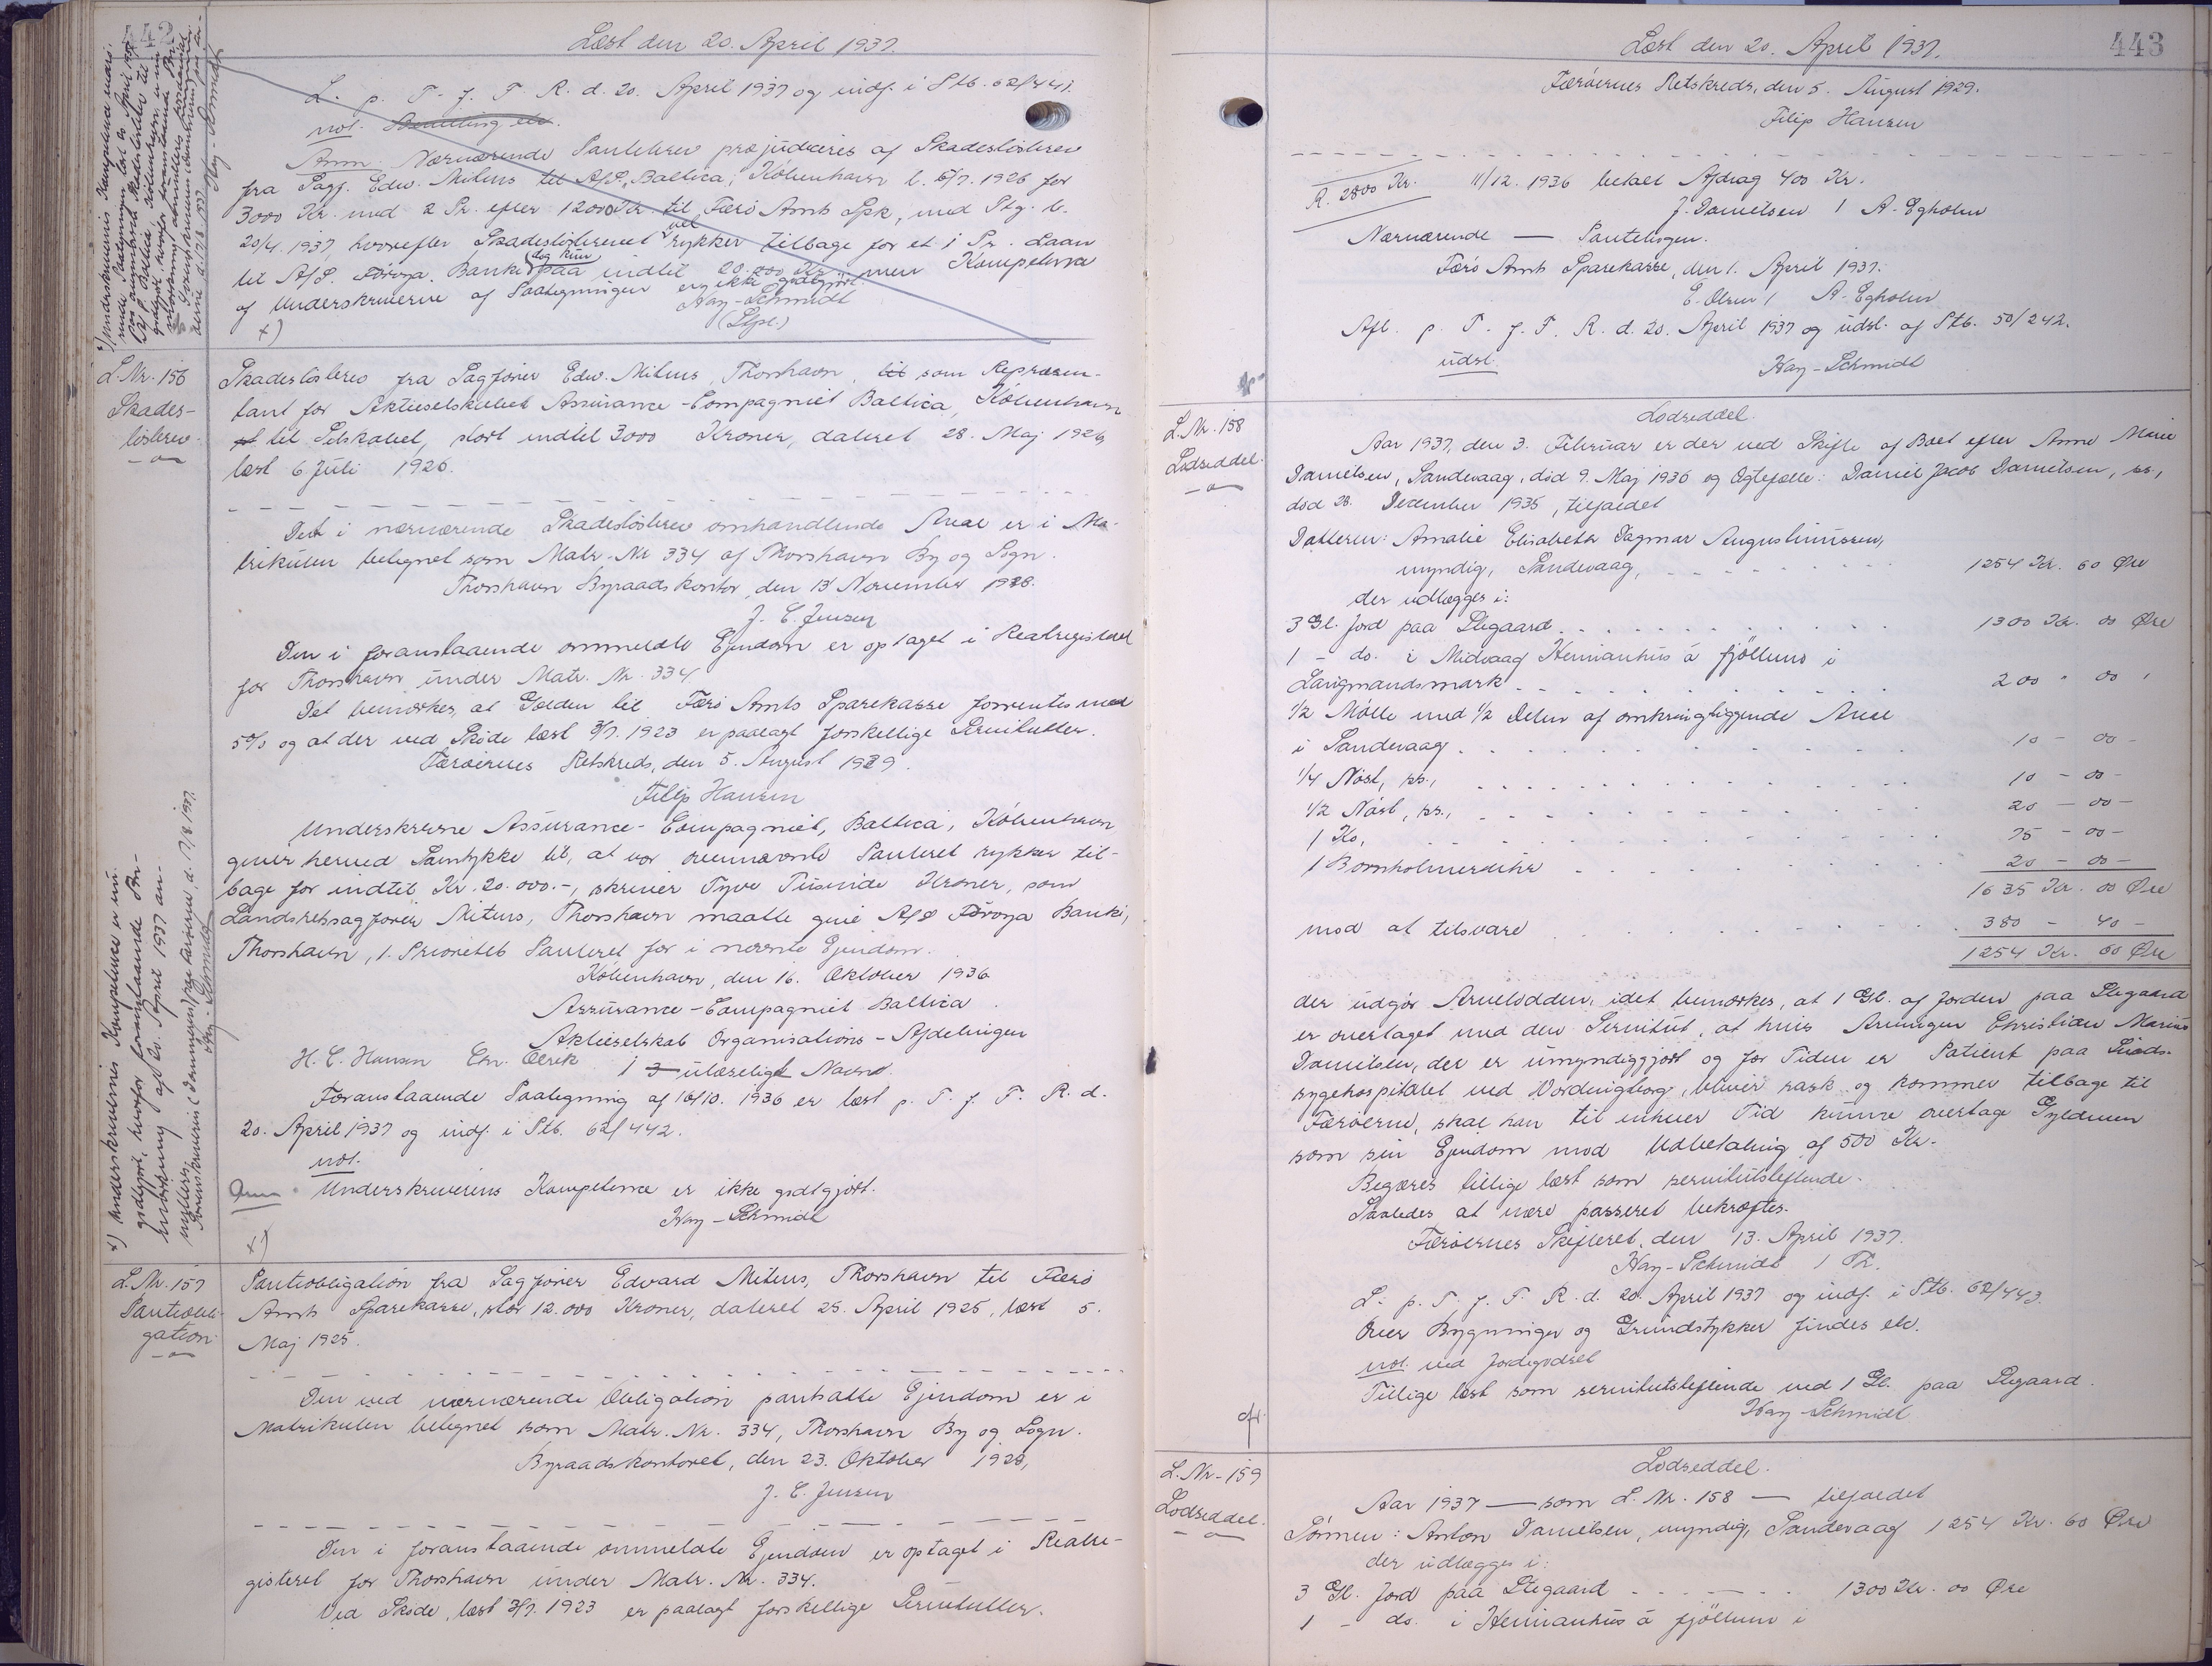 442
Læst den 20. April 1937.
L. p. T. f. F. R. d. 20. April 1937 og indf. i Stb. 62/441.
not.
Anm. Nærværende Pantebrev præjudiceres af Skadesløsbrev
fra Sagf. Edw. Mitens til A/S. Baltica, København l. 6/7. 1926 for
3000 Kr. med 2 Pr. efter 12000 Kr. til Færø Amts Spk, med Ptg. l.
20/4. 1937, hvorefter Skadesløsbrevet vel rykker tilbage for et 1 Pr. Laan
til A/S. Føroya Banki dog kun paa indtil 20.000 Kr. men Kompetence
af Underskriverne af Paategningen er ikke godtgjort.
Hay-Schmidt
(Stpl.)
x)
L. Nr. 156
Skades-
løsbrev.
Skadesløsbrev fra Sagfører Edw. Mitens, Thorshavn, som Repræsen-
tant for Aktieselskabet Assurance-Compagniet Baltica, København
til Selskabet, stort indtil 3000 Kroner, dateret 28. Maj 1926,
læst 6 Juli 1926.
Det i nærværende Skadesløsbrev omhandlende Areal er i Ma-
trikulen betegnet som Matr. Nr 334 af Thorshavn By og Sogn.
Thorshavn Byraadskontor, den 13 November 1928.
J. C. Jensen
Den i foranstaaende ommeldte Ejendom er optaget i Realregistret
for Thorshavn under Matr. Nr. 334
Det bemærkes, at Gælden til Færø Amts Sparekasse forrentes med
5% og at der ved Skøde læst 3/7. 1923 er paalagt forskellige Servitutter.
Færøernes Retskreds, den 5. August 1929.
Filip Hansen
Underskrevne Assurance-Compagniet, Baltica, København
giver herved Samtykke til, at vor ovennævnte Panteret rykker til-
bage for indtil Kr. 20.000.-, skriver Tyve Tusinde Kroner, som
Landsretssagfører Mitens, Thorshavn maatte give A/S Føroya Banki,
Thorshavn, 1. Prioritets Panteret for i nævnte Ejendom.
København, den 16. Oktober 1936
Assurance-Compagniet Baltica
Aktieselskab Organisations-Afdelingen
H. C. Hansen / 1 ulæseligt Navn.
Foranstaaende Paategning af 16/10. 1936 er læst p. T. f. F. R. d.
20. April 1937 og indf. i Stb. 62/442.
not.
Anm. Underskriverens Kompetence er ikke godtgjort.
Hay-Schmidt
x)
x) Underskriverens Kompetence er nu
godtgjort, hvorfor foranstaaende An-
mærkning af 20. April 1937 an-
nulleres.
Hay-Schmidt
L. Nr. 157
Pantobli-
gation
Pantobligation fra Sagfører Edvard Mitens, Thorshavn til Færø
Amts Sparekasse, stor 12.000 Kroner, dateret 25. April 1925, læst 5.
Maj 1925.
Den ved nærværende Obligation pantsatte Ejendom er i
Matrikulen betegnet som Matr. Nr. 334, Thorshavn By og Sogn.
Byraadskontoret, den 23. Oktober 1928,
J. C. Jensen
Den i foranstaaende ommeldte Ejendom er optaget i Realre-
gisteret for Thorshavn under Matr. Nr. 334.
Ved Skøde, læst 3/7. 1923 er paalagt forskellige Servitutter.
443
Læst den 20. April 1937.
Færøernes Retskreds, den 5. August 1929.
Filip Hansen
R. 2800 Kr.
11/12. 1936 betalt Afdrag 400 Kr.
J. Danielsen / A. Egholm
Nærværende — Pantebogen.
Færø Amts Sparekasse, den 1. April 1937.
E. Olsen / A. Egholm
Afl. p. T. f. F. R. d. 20. April 1937 og udsl. af Stb. 50/242.
udsl.
Hay-Schmidt
L. Nr. 158
Lodseddel.
Lodseddel.
Aar 1937, den 3. Februar er der ved Skifte af Boet efter Anne Marie
Danielsen, Sandevaag, død 9. Maj 1936 og Ægtefælle: Daniel Jacob Danielsen, ss.,
død 28. December 1935, tilfaldet
Datteren: Amalie Elisabeth Dagmar Augustinussen,
myndig, Sandevaag, 1254 Kr. 60 Øre
der udlægges i:
3 Gl. Jord paa Stegaard 1300 Kr. 00 Øre
1 - do. i Midvaag Heimanhus á fjøllum i
Laugmandsmark 200 " 00 "
1/2 Mølle med 1/2 Delen af omkringliggende Areal
i Sandevaag 10 - 00 -
1/4 Nøst, ss., 10 - 00 -
1/2 Nøst, ss., 20 - 00 -
1 Ko, 75 - 00 -
1 Bornholmerdihr 20 - 00 -
1635 Kr. 00 Øre
mod at tilsvare 380 - 40 -
1254 Kr. 60 Øre
der udgør Arvelodden, idet bemærkes, at 1 Gl. af Jorden paa Stegaard
er overtaget med den Servitut, at hvis Arvingen Christian Marius
Danielsen, der er umyndiggjort og for Tiden er Patient paa Sinds-
sygehospitalet ved Vordingborg, bliver rask og kommer tilbage til
Færøerne, skal han til enhver Tid kunne overtage Gylden
som sin Ejendom mod Udbetaling af 500 Kr.
Begæres tillige læst som servitutstiftende.
Saaledes at være passeret bekræftes.
Færøernes Skifteret, den 13. April 1937.
Hay-Schmidt /
L. p. T. f. F. R. d. 20. April 1937 og indf. i Stb. 62/443.
Over Bygninger og Grundstykker findes etc.
not. ved Jordegodset
Tillige læst som servitutstiftende ved 1 Gl. paa Stegaard.
Hay-Schmidt
L. Nr. 159
Lodseddel.
Lodseddel.
Aar 1937 — som L. Nr. 158 — tilfaldet
Sønnen: Anton Danielsen, myndig, Sandevaag 1254 Kr. 60 Øre
der udlægges i:
3 Gl. Jord paa Stegaard 1300 Kr. 00 Øre
1 - do. i Heimanhus á fjøllum i